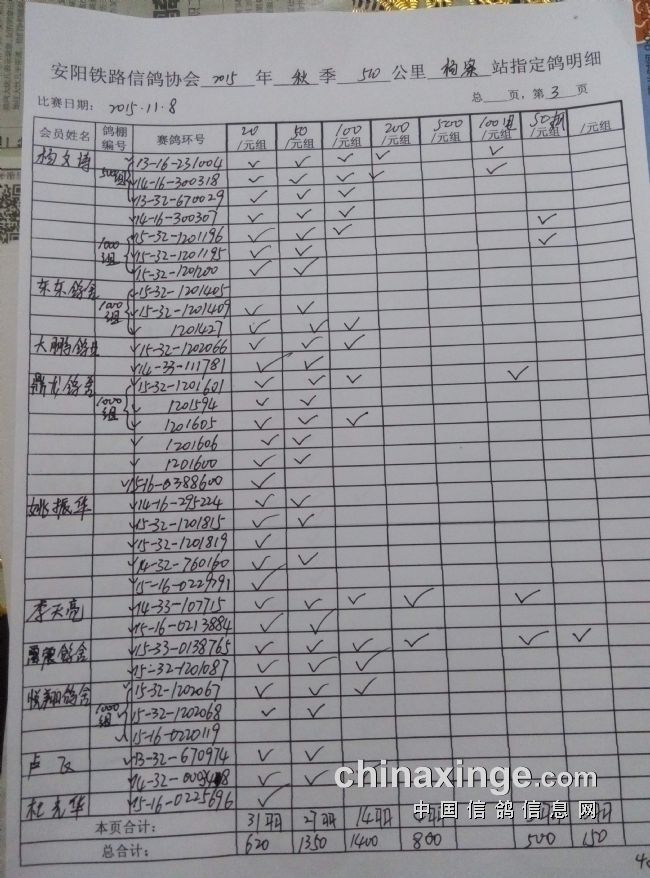 安阳铁路信鸽协会 2015 年 秋 季 500 公里 站指定鸽明细
比赛日期: 2015.11.8 总 页, 第 3 页
会员姓名 鸽棚编号 赛鸽环号 20/元组 50/元组 100/元组 200/元组 500/元组 100 /元组 50 /元组 /元组
杨文博 500组 √13-16-231004 √ √ √ √ √
√14-16-300318 √ √ √ √ √
√13-32-670029 √ √ √
√14-16-300307 √ √ √ √
1000组 √15-32-1201196 √ √ √ √
√15-32-1201195 √ √
√15-32-1201200 √ √
东东鸽舍 1000组 √15-32-1201405
√15-32-1201409 √ √
√ 1201427 √ √ √
大鹏鸽舍 √15-32-1202066 √ √ √
√14-33-111781 √ √
鼎龙鸽舍 1000组 √15-32-1201601 √ √ √ √
√ 1201594 √ √
√ 1201605 √ √ √
√ 1201606 √ √
√ 1201600 √ √
√15-16-0388600 √
姚振华 √14-16-295224 √ √
√15-32-1201815 √ √
√15-32-1201819 √
√14-32-760160 √ √
√15-16-0229791 √
李天亮 √14-33-107715 √ √ √ √ √
√15-16-0213884 √ √
鸽舍 √15-33-0138765 √ √ √ √ √ √
√15-32-1201087 √ √ √
悦翔鸽舍 1000组 √15-32-1202067 √ √ √
√15-32-1202068 √ √
√15-16-0220119
卢飞 √13-32-670974 √ √
√14-32- √ √
杜克华 √15-16-0225696 √
本页合计: 31羽 27羽 14羽
总合计: 620 1350 1400 800 500 150
chinaxinge.com
中国信鸽信息网